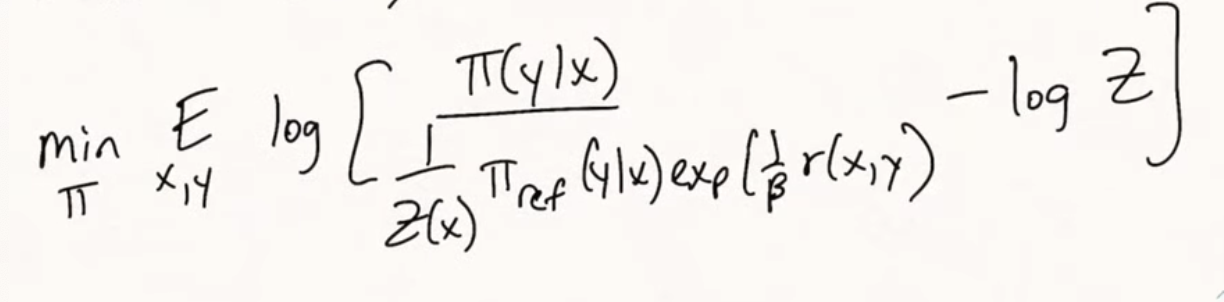 min_π E_{x,y} log [ π(y|x) / ( 1/Z(x) π_ref (y|x) exp ( 1/β r(x,y) ) - log Z ]